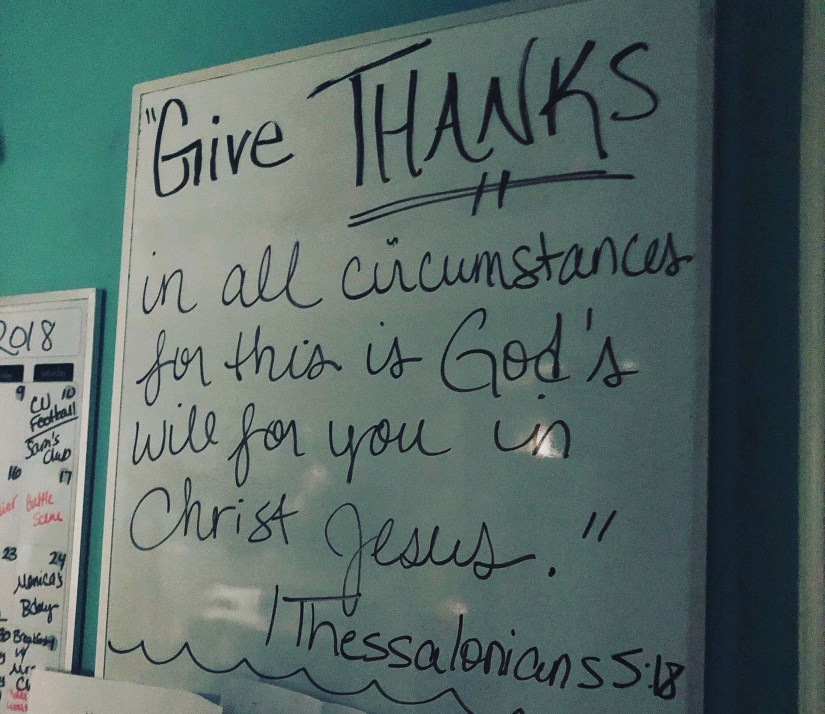 "Give THANKS
in all circumstances
for this is God's
will for you in
Christ Jesus."
1 Thessalonians 5:18
2018
9 10
CU
Football
Sam's
Club
16 17
Battle
Scene
23 24
Monica's
Bday
30 Breakfast
w/